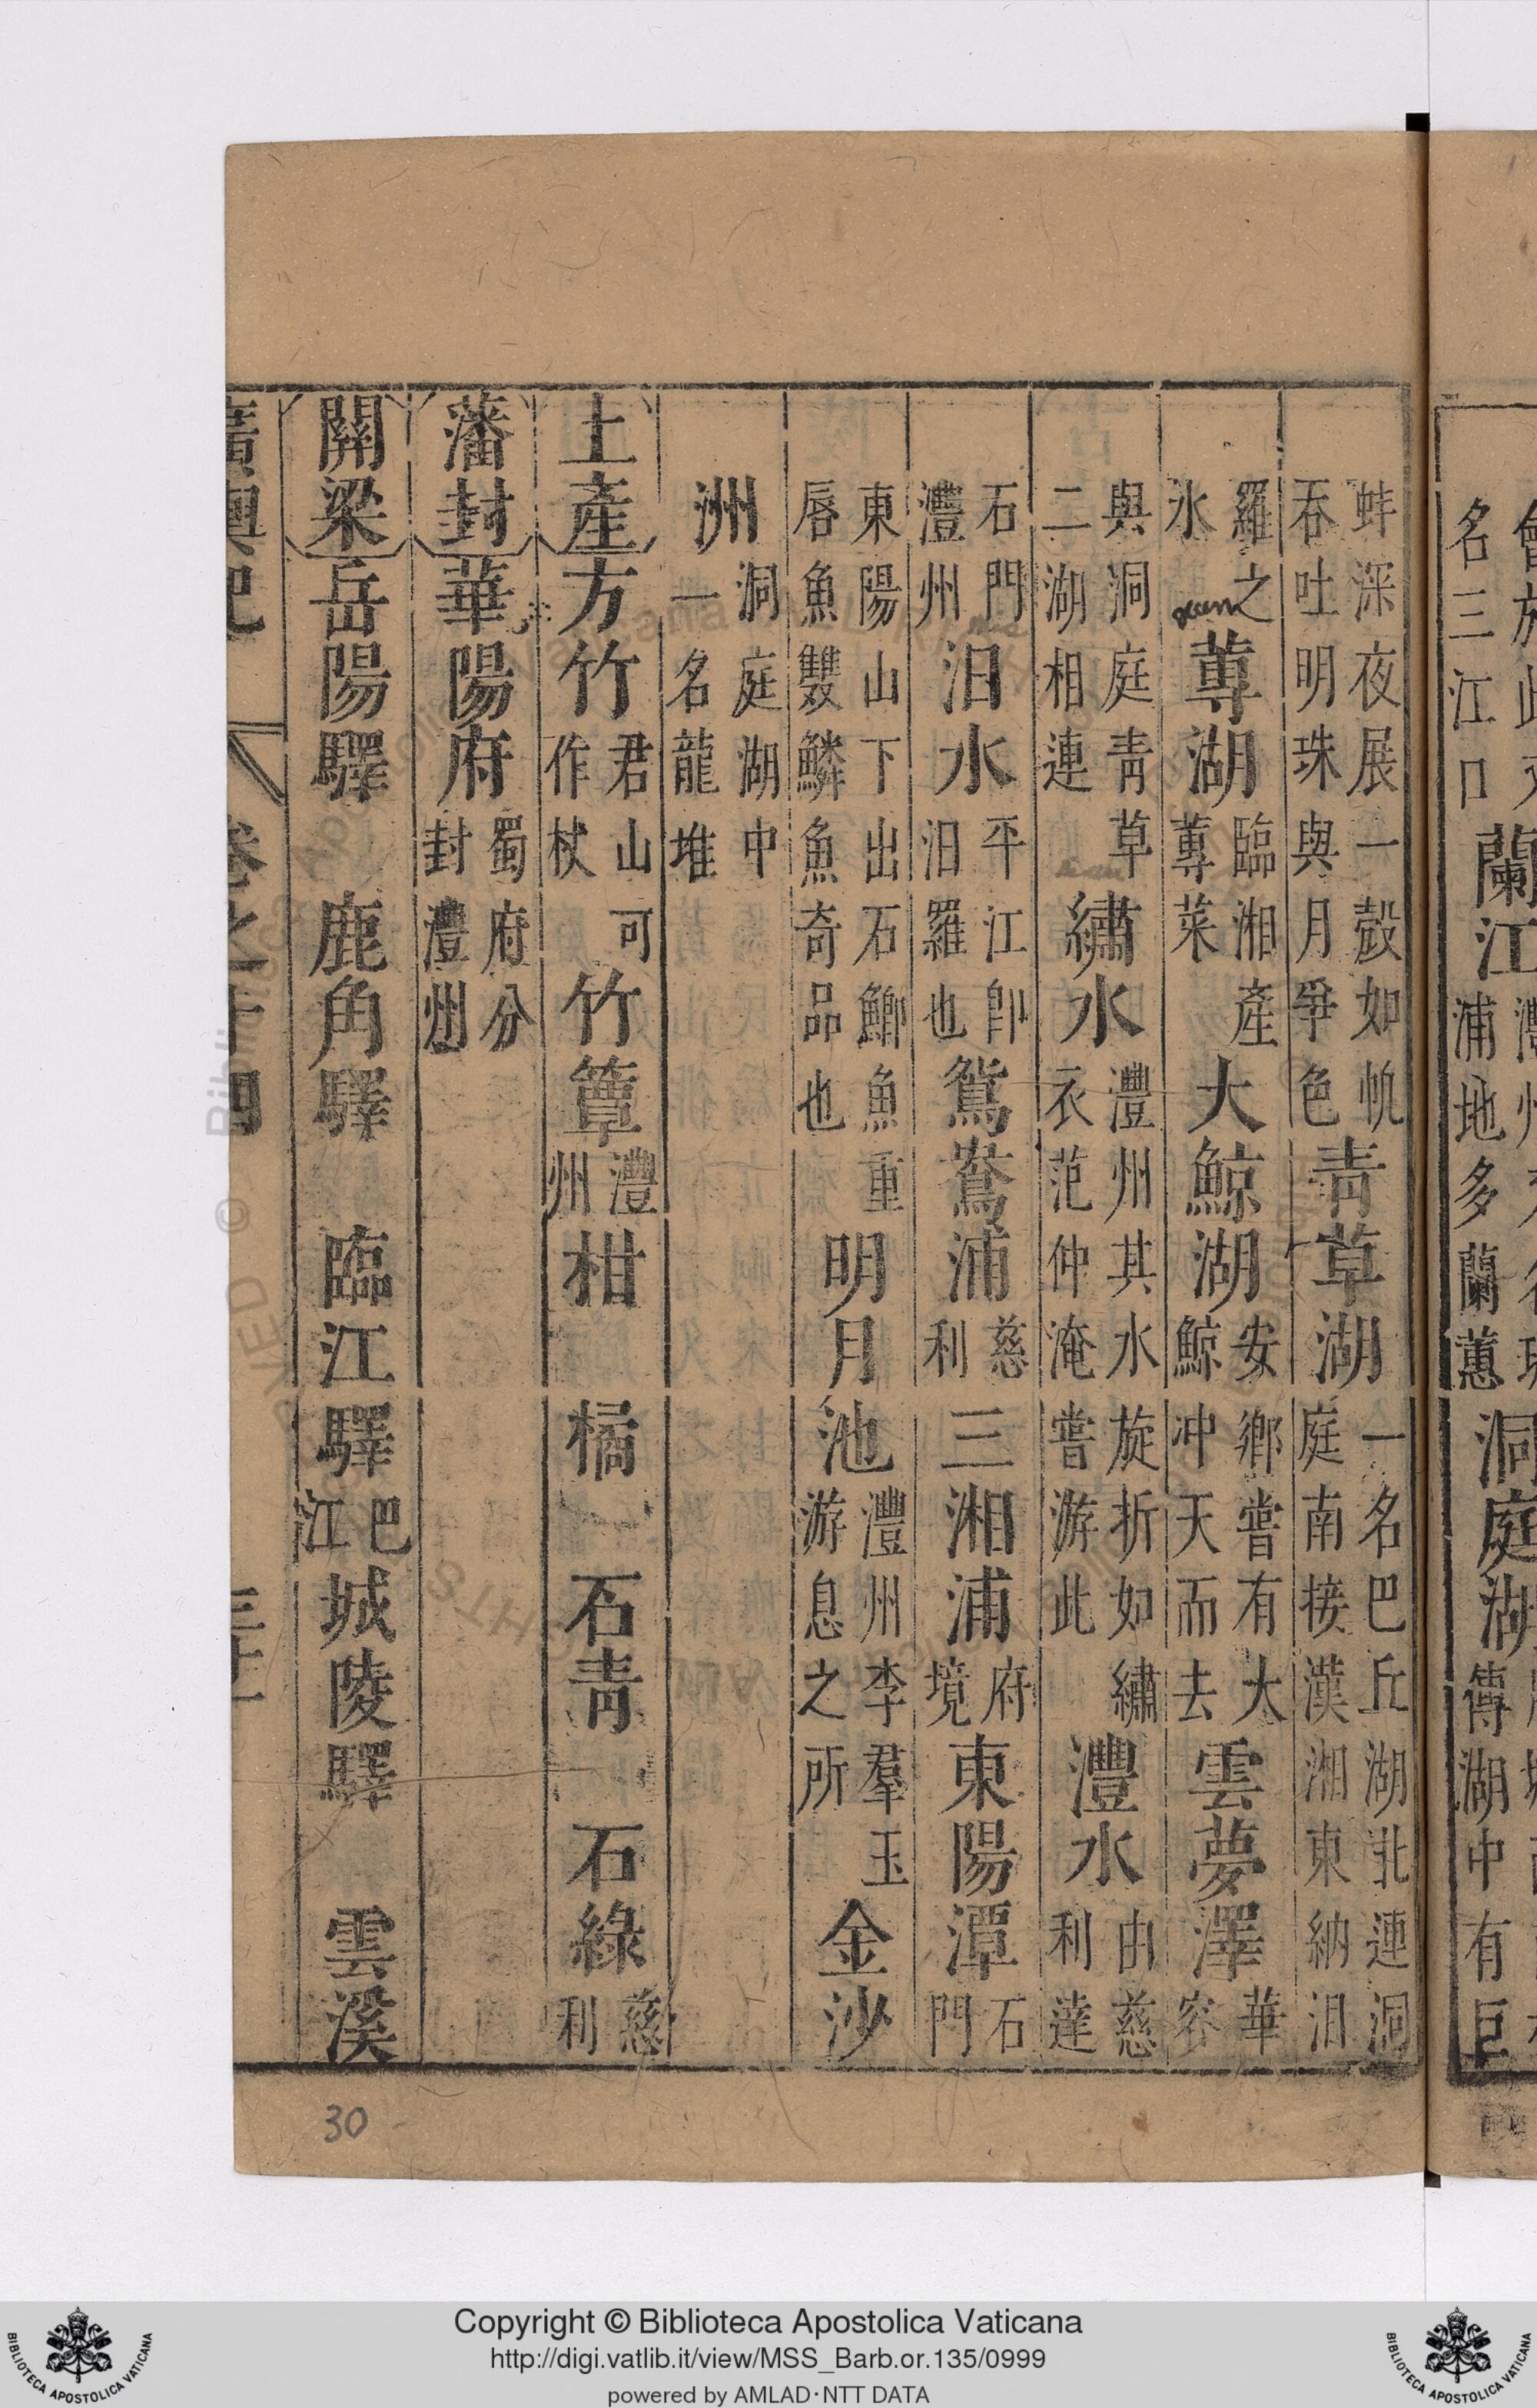 名三江口蘭江浦地多蘭蕙洞庭湖傳湖中有巨
蚌深夜展一殼如帆吞吐明珠與月爭色青草湖一名巴丘湖北連洞庭南接漢湘東納汨
羅之水蓴湖臨湘產蓴菜大鯨湖安鄉嘗有大鯨冲天而去雲夢澤華容
與洞庭青草二湖相連繡水澧州其水旋折如繡衣范仲淹嘗游此澧水由慈利達
石門澧州汨水平江卽汨羅也鴛鴦浦慈利三湘浦府境東陽潭石門
東陽山下出石鯽魚重唇魚雙鱗魚奇品也明月池澧州李羣玉游息之所金沙
洲洞庭湖中一名龍堆
土產方竹君山可作杖竹簟澧州柑 橘 石青 石綠慈利
藩封華陽府蜀府分封澧州
關梁岳陽驛 鹿角驛 臨江驛巴江城陵驛 雲溪
廣輿記 卷之十四 三十一
30
Copyright © Biblioteca Apostolica Vaticana
http://digi.vatlib.it/view/MSS_Barb.or.135/0999
powered by AMLAD·NTT DATA
BIBLIOTECA APOSTOLICA VATICANA
BIBLIOTECA APOSTOLICA VATICANA